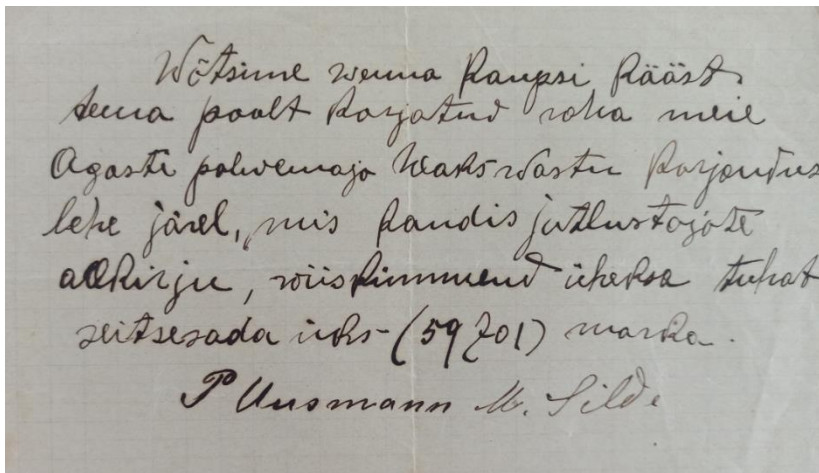 Wõtsime wenna Kaupsi kääst
tema poolt korjatud raha meie
Agaste palwemaja heaks wastu korjandus
lehe järel, mis kandis jutlustajate
allkirju, wiiskümmend üheksa tuhat
seitsesada üks - (59701) marka.
P Uusmann M. Silde